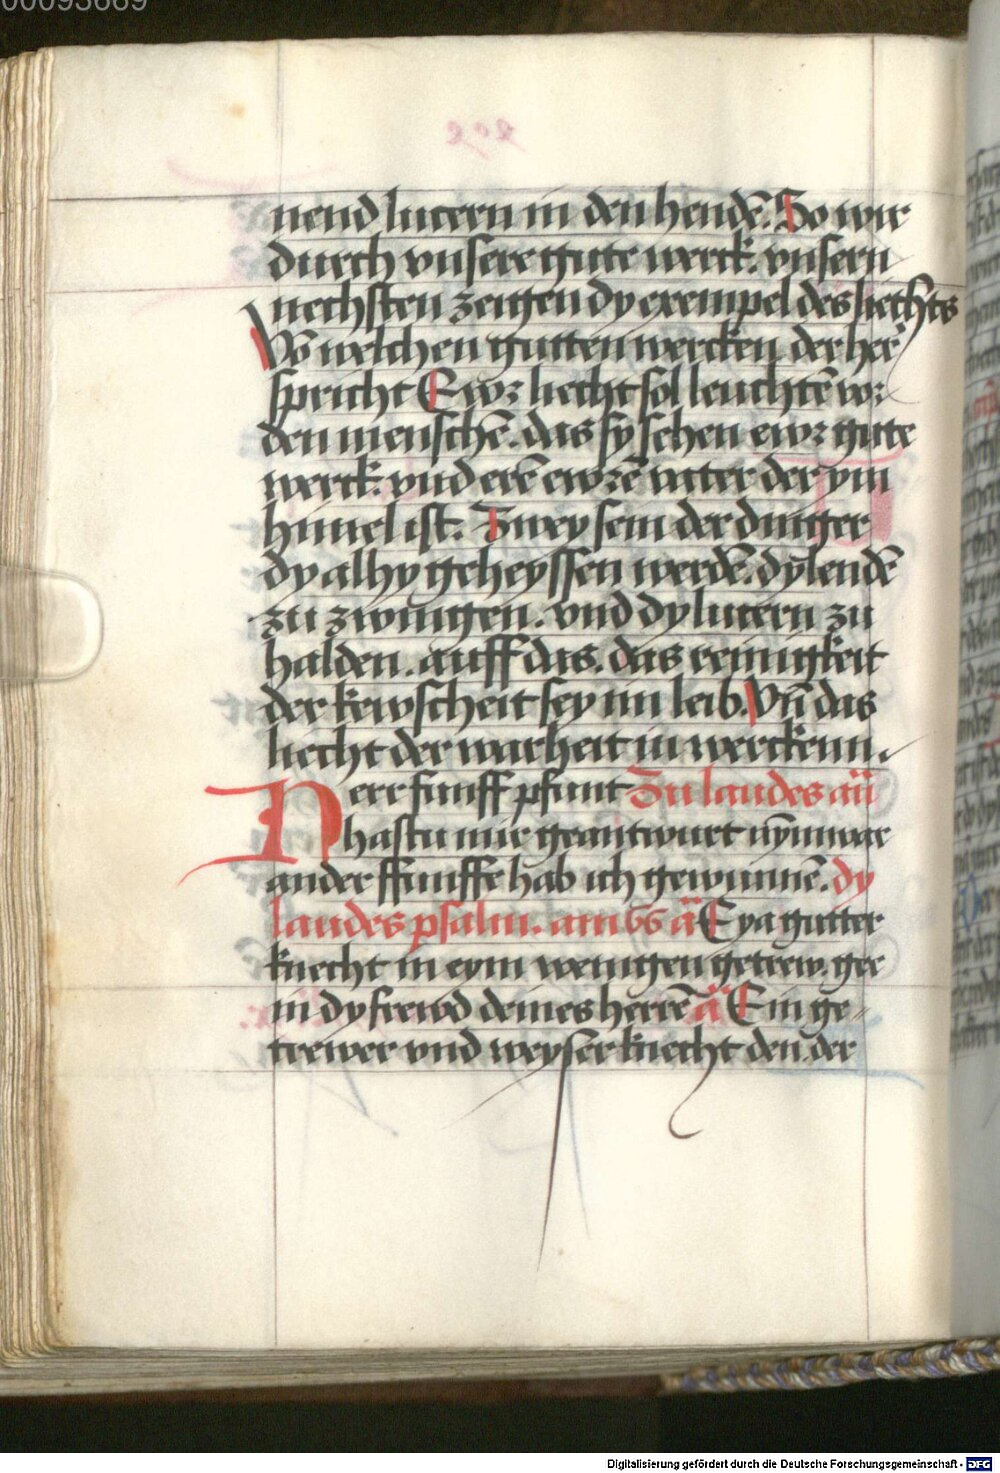 00093669
nend lucern in den hendē. So wir
durch vnsere gute werck. vnsern
nechsten zeigen dy exempel des liechts
Vō welchen gutten wercken der her̄
spricht Ewr liecht sol leuchtē vor
den menschē. das sy sehen ewr gute
werck. vnd erē ewrē vatter der ym
himel ist. Zwey sein der dinger
dy alhy geheyssen werdē. dy lendē
zu zwingen. vnd dy lucern zu
halden. auff das. das reinigkeit
der kewscheit sey im leib. Vn̄ das
liecht der warheit in werckenn.
Herr funff pfunt Zu laudes an̄
hastu mir geantwurt nym war
ander ffunffe hab ich gewunnē. dy
laudes psalm. am 66 a᷑ Eya gutter
knecht in eym wenigen getrew. gee
in dy frewd deines herrē a᷑ Ein ge-
trewer vnd weyser knecht den der
Digitalisierung gefördert durch die Deutsche Forschungsgemeinschaft - DFG